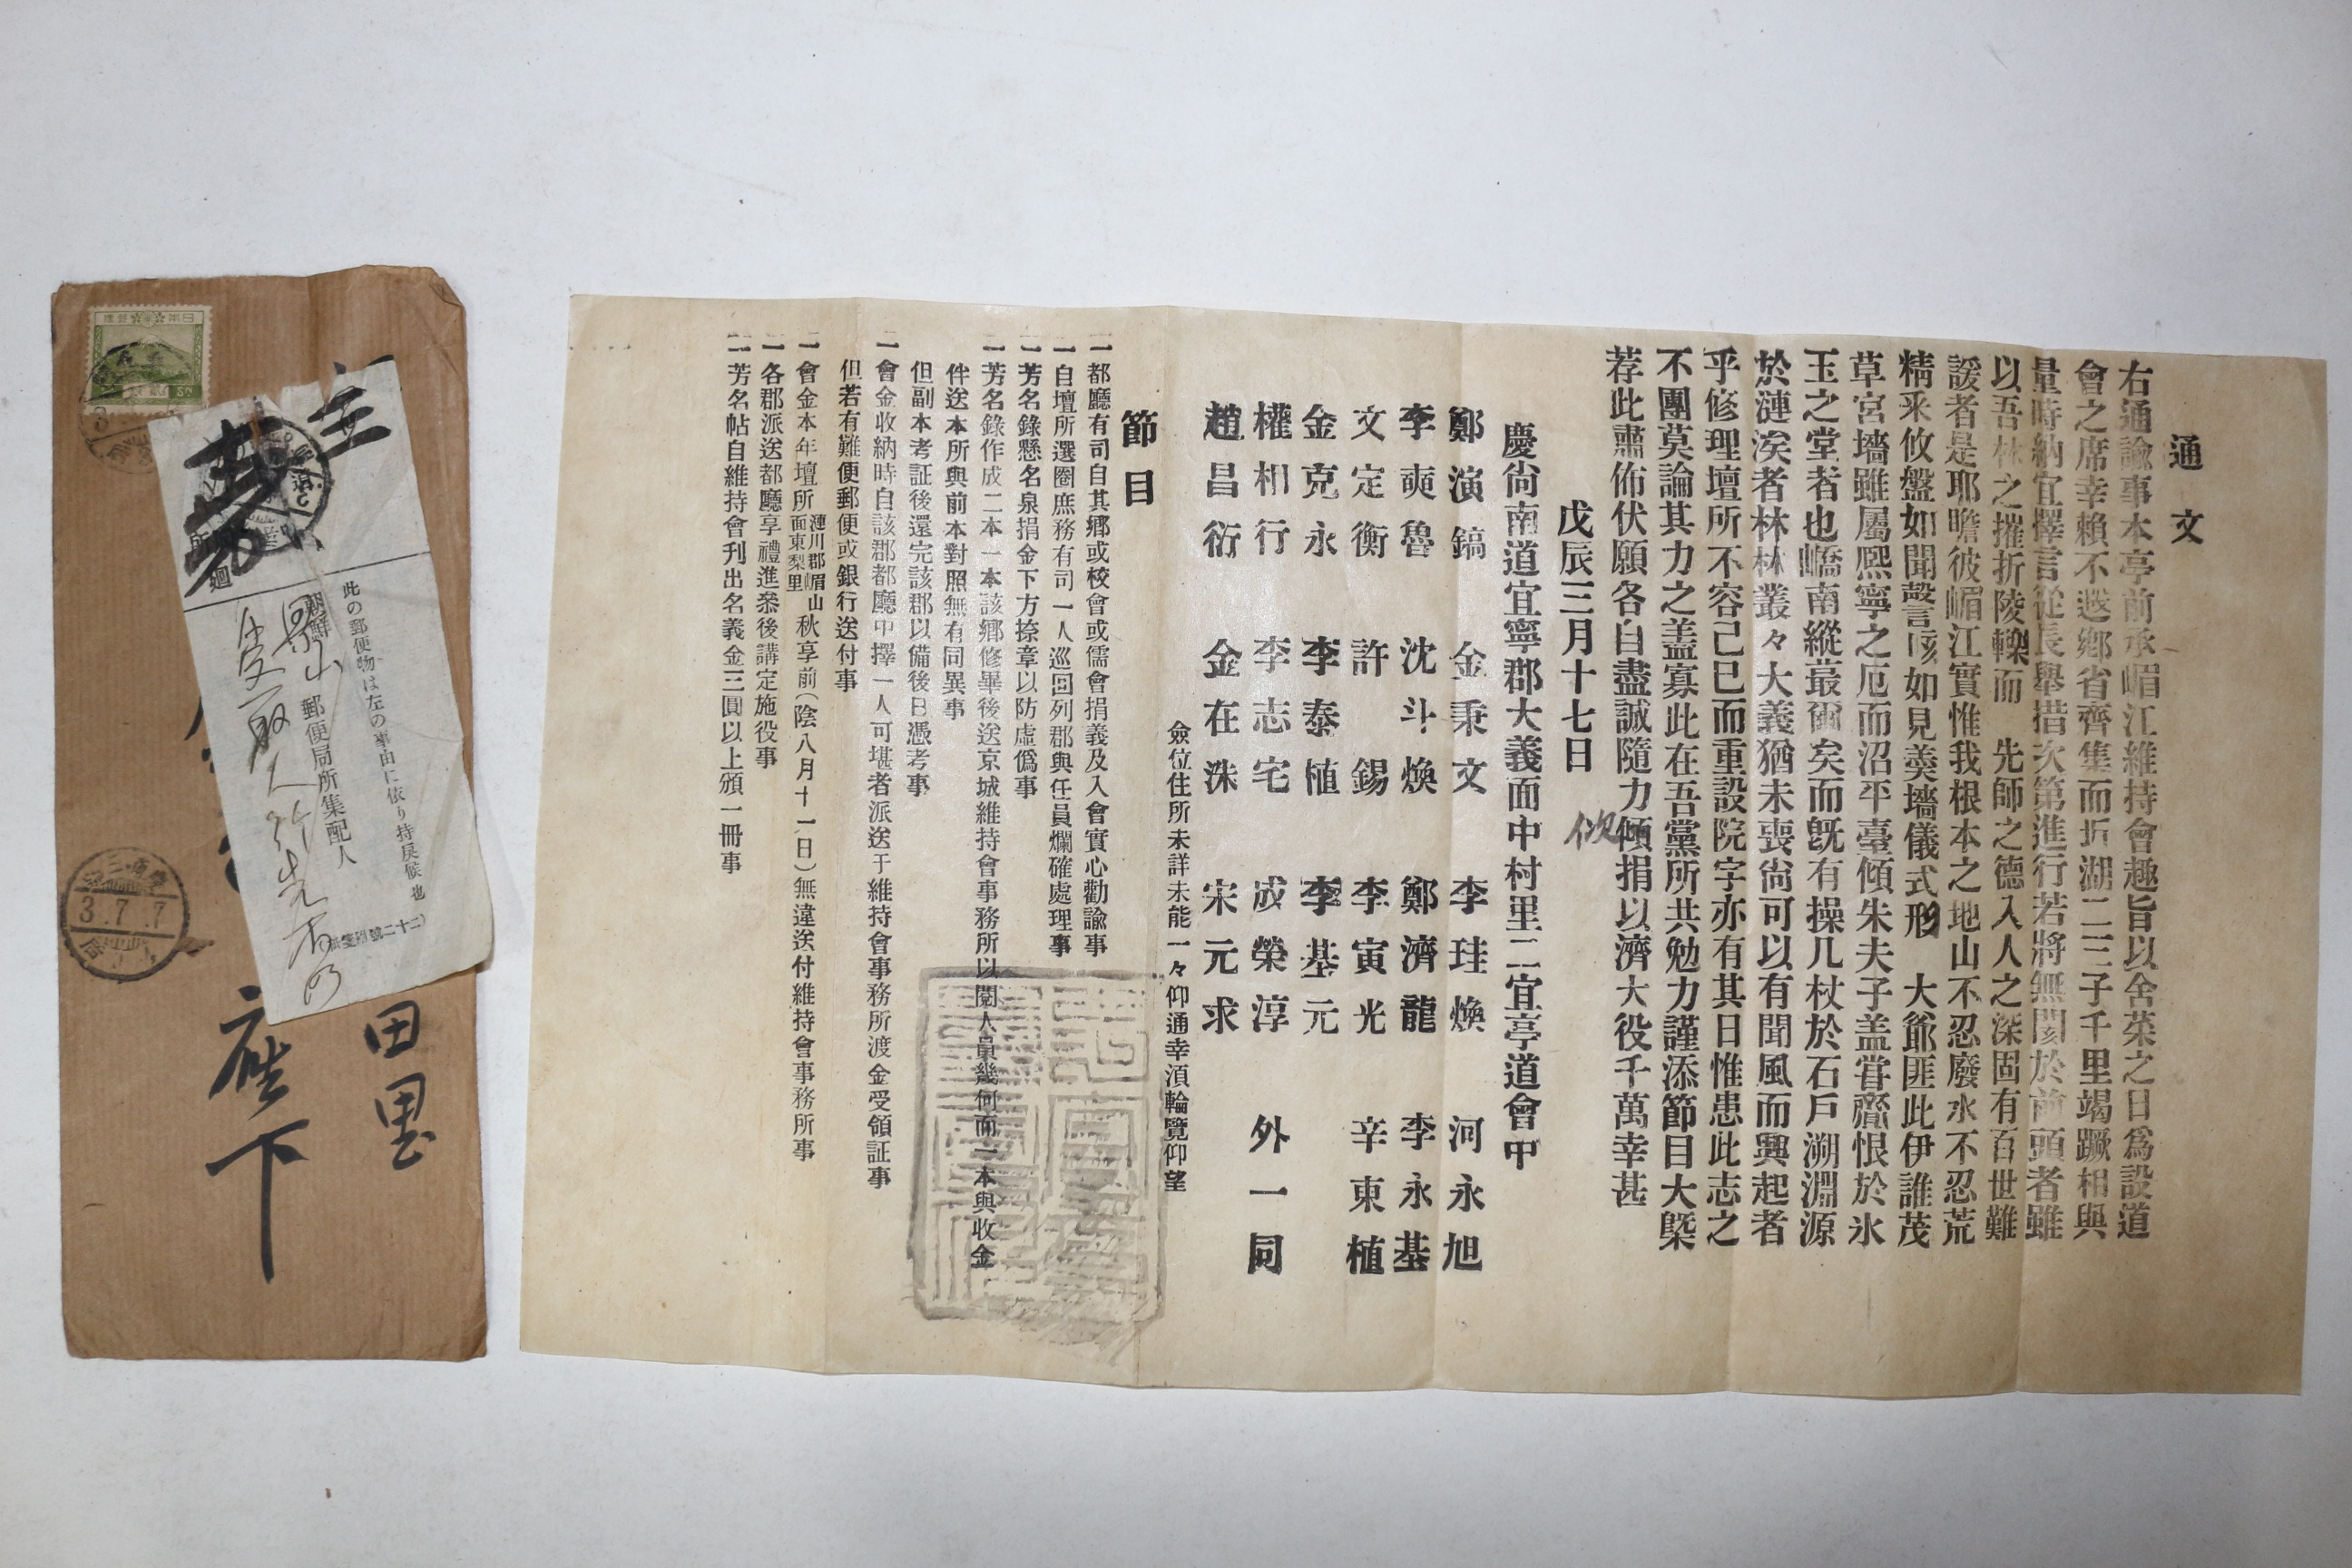 通文
右通諭事本亭前承嵋江維持會趣旨以舍菜之日爲設道
會之席幸賴不遐鄕省齊集而圻湖二三子千里竭蹶相與
量時納宜擇言從長舉措次第進行若將無閡於前頭者雖
以吾林之摧折陵轢而 先師之德入人之深固有百世難
諼者是耶瞻彼嵋江實惟我根本之地山不忍廢水不忍荒
精采攸盤如聞謦言咳如見羮墻儀式形 大爺匪此伊誰茂
草宮墻雖屬熈寧之厄而沼平臺傾朱夫子盖甞齎恨於氷
玉之堂者也嶠南縱蕞爾矣而旣有操几杖於石戶溯淵源
於漣涘者林林叢々大義猶未喪尙可以有聞風而興起者
乎修理壇所不容已巳而重設院字亦有其日惟患此志之
不團莫論其力之盖寡此在吾黨所共勉力謹添節目大槩
荐此肅佈伏願各自盡誠隨力傾捐以濟大役千萬幸甚
戊辰三月十七日
慶尙南道宜寧郡大義面中村里二宜亭道會中
鄭演鎬 金秉文 李珪煥 河永旭
李奭魯 沈斗煥 鄭濟龍 李永基
文定衡 許錫 李寅光 辛東植
金克永 李泰植 李基元
權相行 李志宅 成榮淳 外一同
趙昌衍 金在洙 宋元求
僉位住所未詳未能一々仰通幸湏輪覽仰望
節目
一都廳有司自其鄕或校會或儒會捐義及入會實心勸諭事
一自壇所選圈庶務有司一人巡回列郡與任員爛確處理事
一芳名錄懸名泉捐金下方捺章以防虛僞事
一芳名錄作成二本一本該鄕修畢後送京城維持會事務所以閱人員幾何而一本與收金
件送本所與前本對照無有同異事
但副本考証後還完該郡以備後日憑考事
一會金收納時自該郡都廳中擇一人可堪者派送于維持會事務所渡金受領証事
但若有難便郵便或銀行送付事
一會金本年壇所漣川郡嵋山面東梨里秋享前(陰八月十一日)無違送付維持會事務所事
一各郡派送都廳享禮進叅後講定施役事
一芳名帖自維持會刊出名義金三圓以上頒一冊事
此の郵便物は左の事由に依り持戾候也
郵便局所集配人
3.7.7
田里
座下